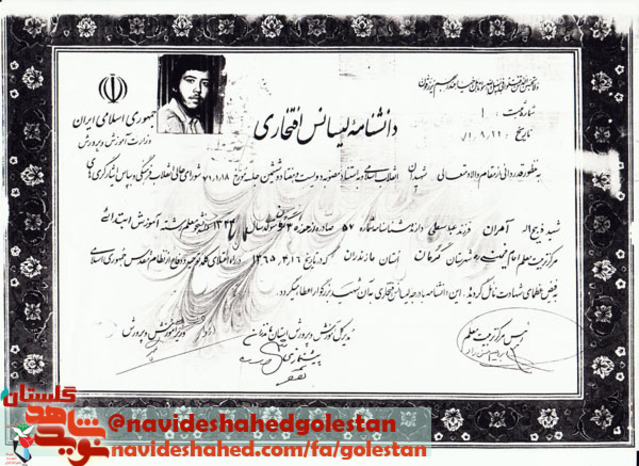 جمهوری اسلامی ایران
وزارت آموزش و پرورش
شماره ثبت ۱
تاریخ
دانشنامه لیسانس افتخاری
به منظور قدردانی از مقام والا و متعالی شهیدان انقلاب اسلامی و به استناد مصوبه دویست و هفتاد و ششمین جلسه مورخ ۷۱/۱/۱۸ شورای عالی انقلاب فرهنگی و به پاس ایثارگری های
شهید ذبیح اله آهبران فرزند عباسعلی دارنده شناسنامه شماره ۵۷ صادره از متولد سال دانشجو معلم رشته آموزش ابتدائی
مرکز تربیت معلم امام خمینی ره شهرستان گرگان استان مازندران که در تاریخ ۱۳۶۵.۴.۱۶ در راه اعتلای کلمه توحید و دفاع از نظام مقدس جمهوری اسلامی
به فیض عظمای شهادت نائل گردیدند. این دانشنامه با درجه لیسانس افتخاری به آن شهید بزرگوار اعطا می گردد.
رئیس مرکز تربیت معلم
مدیر کل آموزش و پرورش استان مازندران
وزیر آموزش و پرورش
گلستان
نوید شاهد
@navideshahedgolestan
navideshahed.com/fa/golestan